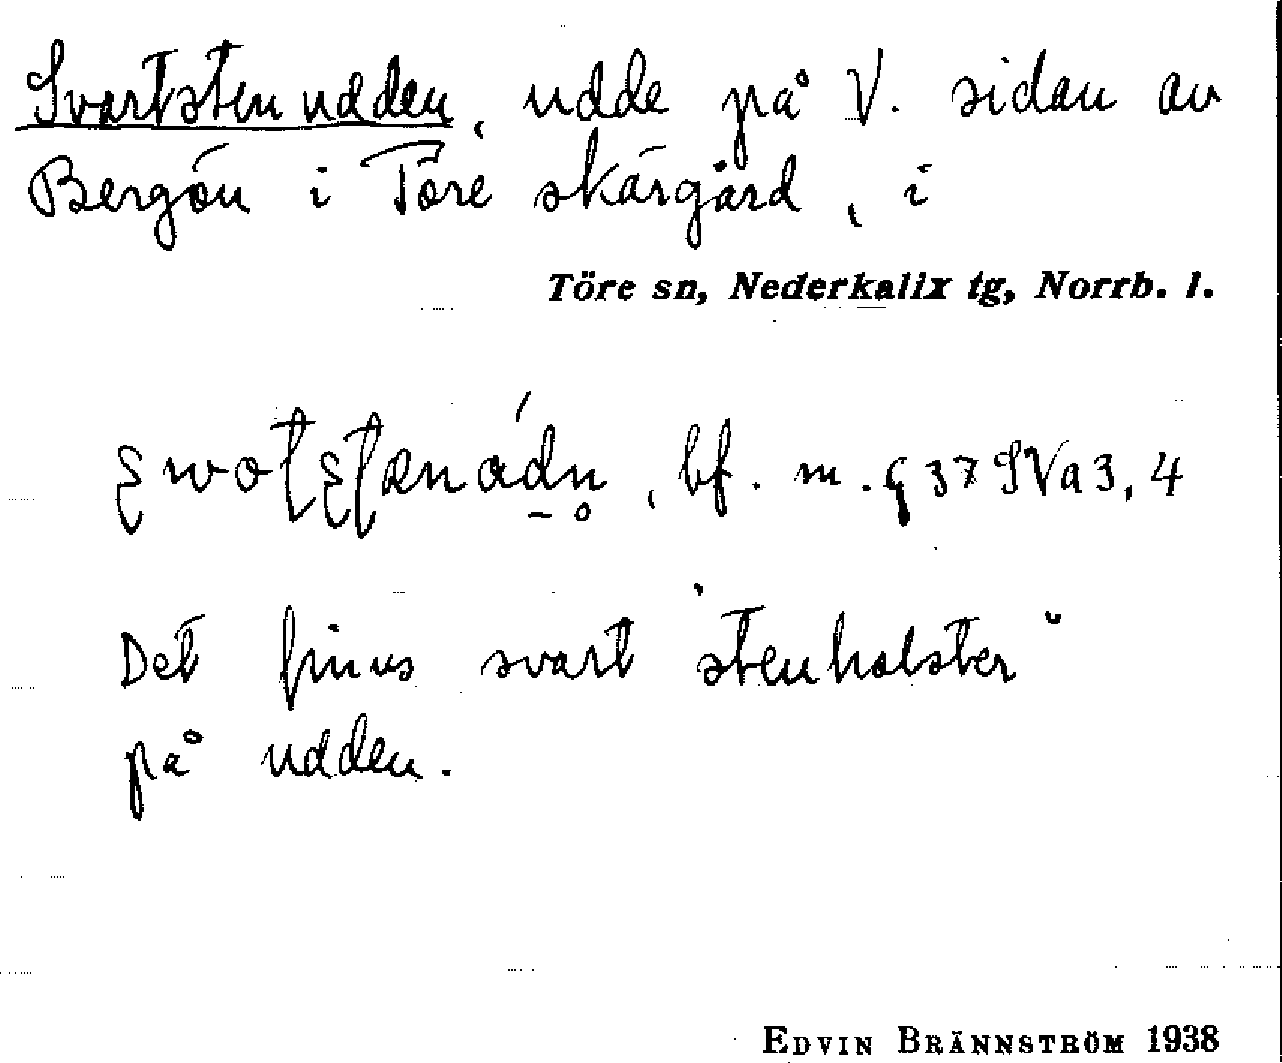 Svartstenudden, udde på V. sidan av
Bergön i Töre skärgård, i
Töre sn, Nederkalix tg, Norrb. l.
bf. m. § 37 SVa 3, 4
Det finns svart "stenhalster"
på udden.
EDVIN BRÄNNSTRÖM 1938